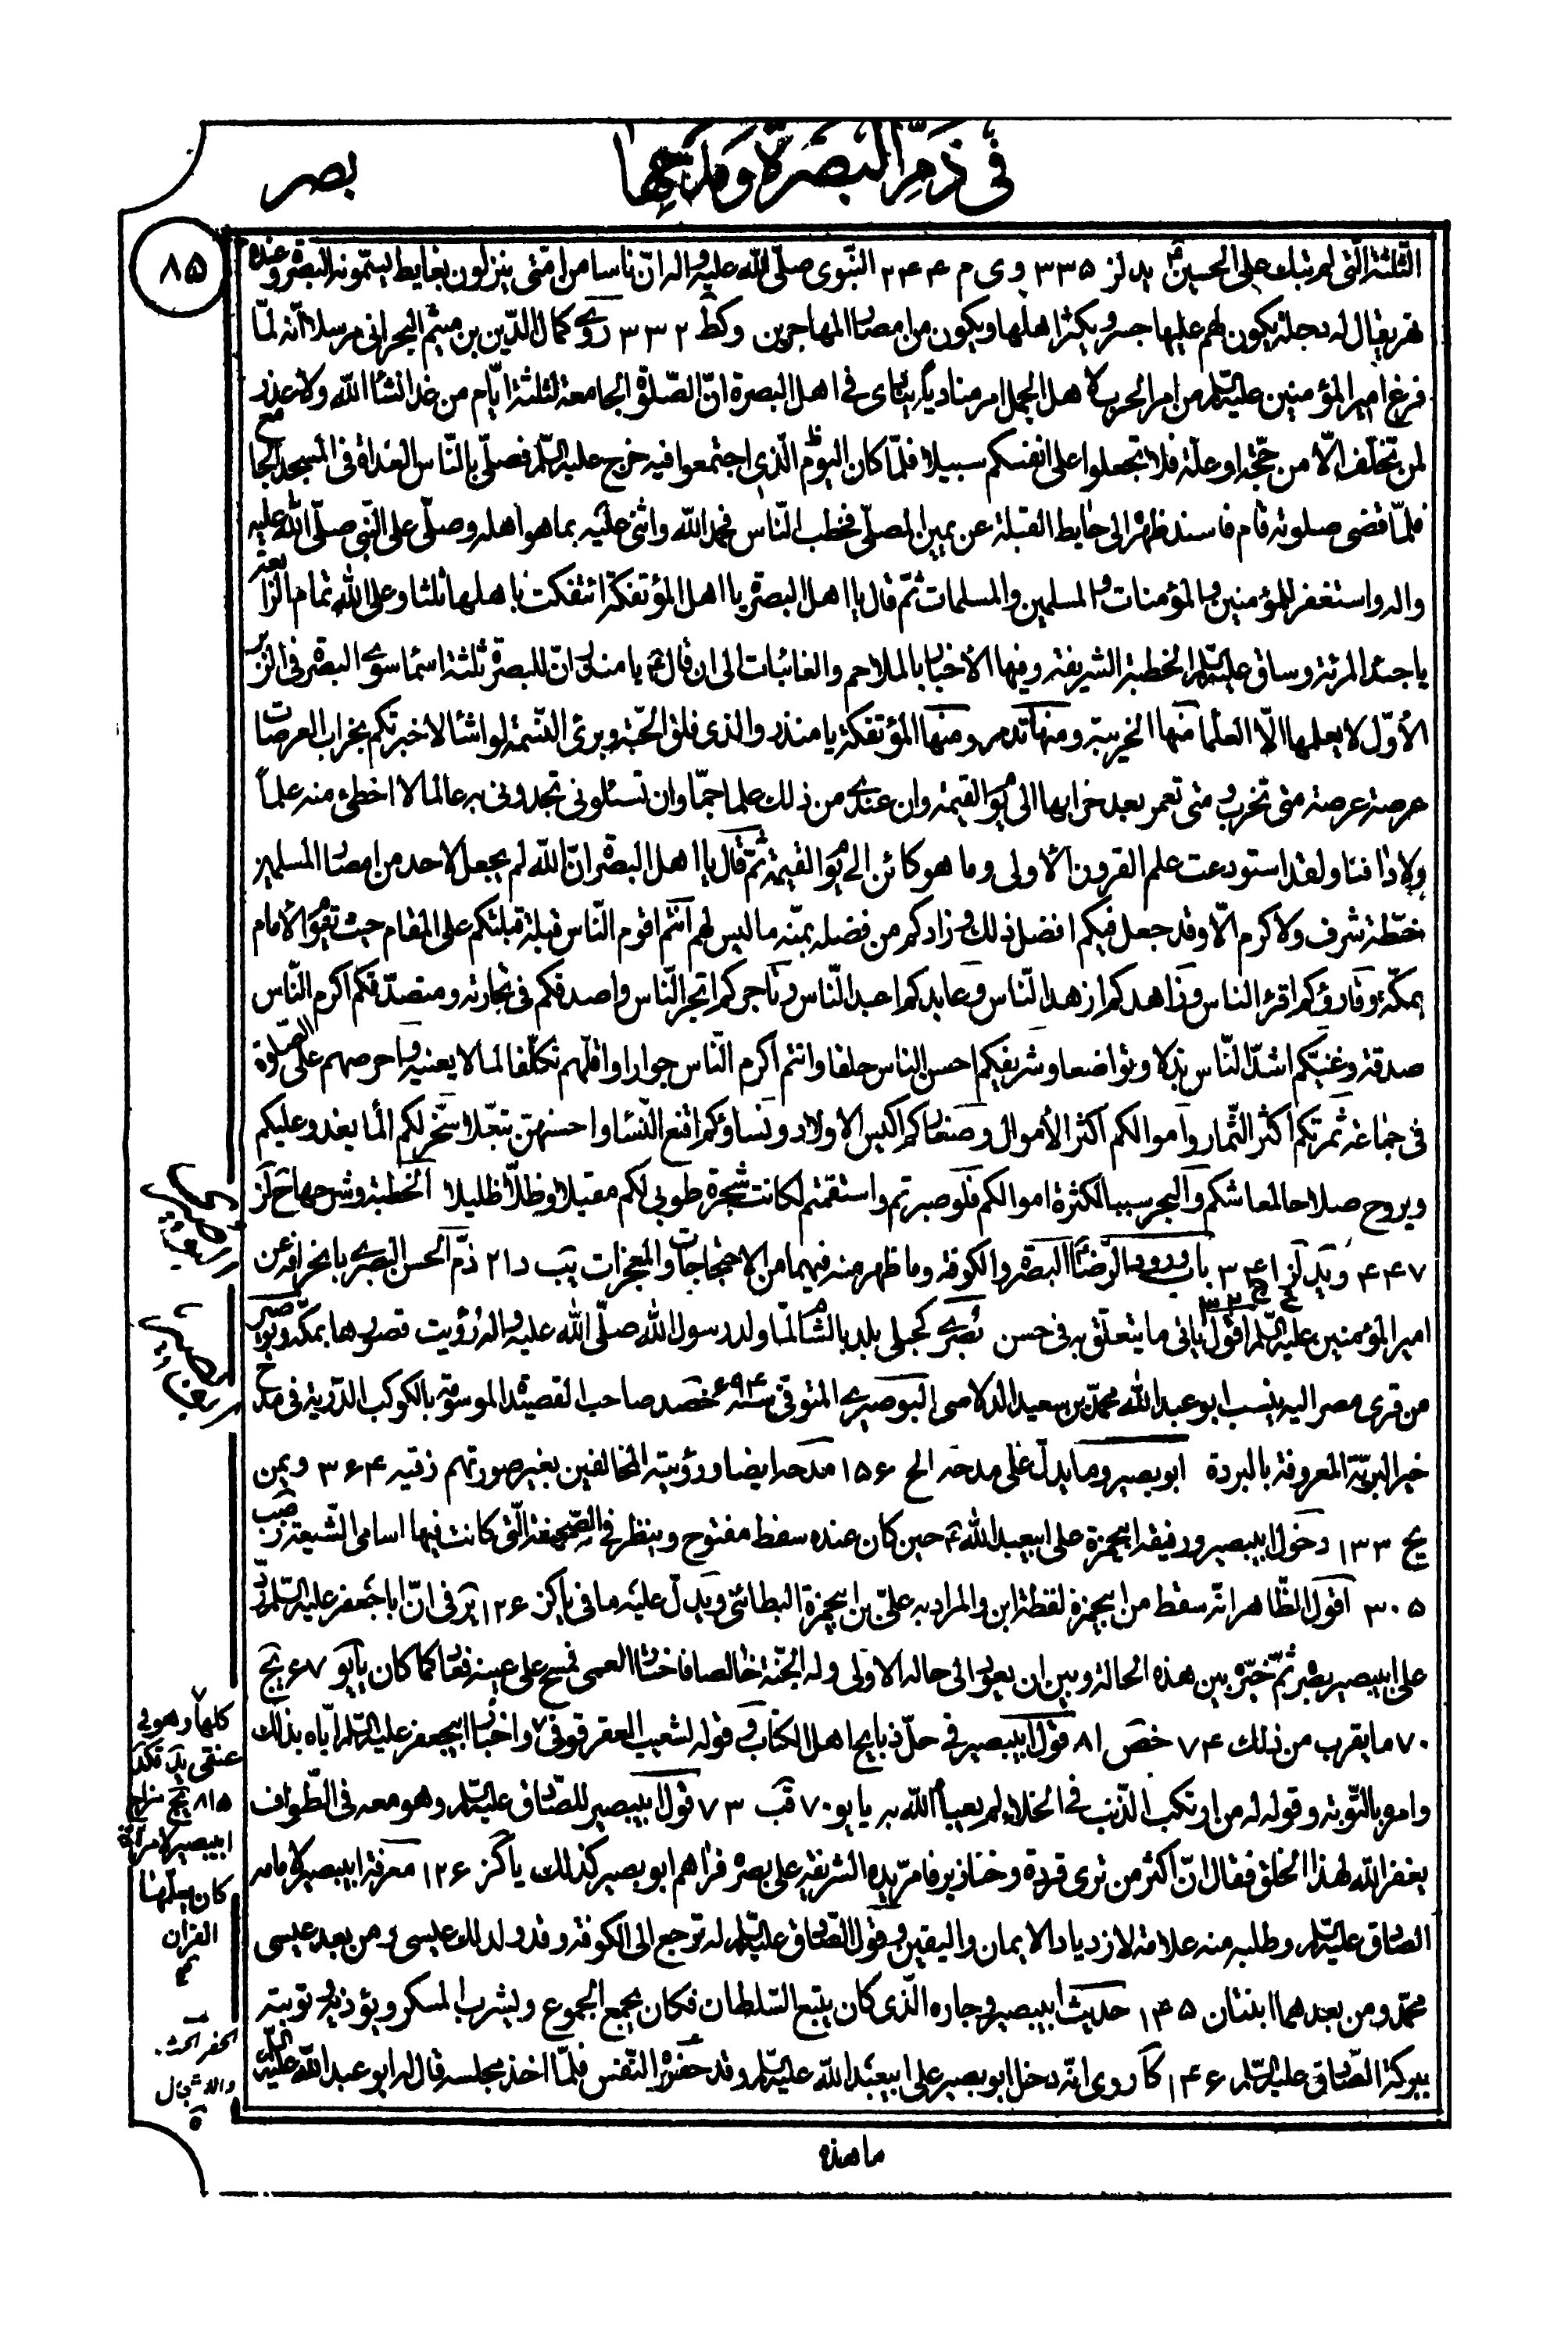 فى ذمّ البصرة ومدحها
بصر
٨۵
الثلثة الّتى لم تبك على الحسين ع يد لز ٣٣۵ وى م ٢۴۴ النّبوى صلّى الله عليه واله انّ ناسا من امّتى ينزلون بغايط يسمّونه البصرة وعنده
نهر يقال له دجلة يكون لهم عليها جسر ويكثر اهلها ويكون من امصار المهاجرين وكط ٣٣٢ روى كمال الدّين بن ميثم البحرانى مرسلا انّه لمّا
فرغ امير المؤمنين عليه السّلم من امر الحرب لاهل الجمل امر مناديا ينادى فى اهل البصرة انّ الصّلوة الجامعة لثلثة ايّام من غد انشاء الله ولا عذر
لمن تخلّف الّا من حجّة او علّة فلا تجعلوا على انفسكم سبيلا فلمّا كان اليوم الّذى اجتمعوا فيه خرج عليه السّلم فصلّى بالنّاس الغداة فى المسجد الجامع
فلمّا قضى صلوته قام فاسند ظهره الى حايط القبلة عن يمين المصلّى فخطب النّاس فحمد الله واثنى عليه بما هو اهله وصلّى على النّبى صلّى الله عليه
واله واستغفر للمؤمنين والمؤمنات والمسلمين والمسلمات ثمّ قال يا اهل البصرة يا اهل المؤتفكة ائتفكت باهلها ثلثا وعلى الله تمام الرّابعة
يا جند المرئة وساق عليه السّلم الخطبة الشريفة وفيها الاخبار بالملاحم والغائبات الى ان قال ع يا منذر انّ للبصرة ثلثة اسماء سوى البصرة فى الزبر
الاوّل لا يعلمها الّا العلماء منها الخريبة ومنها تدمر ومنها المؤتفكة يا منذر والّذى فلق الحبّة وبرئ النّسمة لو اشاء لاخبرتكم بخراب العرصات
عرصة عرصة متى تخرب ومتى تعمر بعد خرابها الى يوم القيمة وان عندى من ذلك علما جمّا وان تسئلونى تجدونى به عالما لا اخطئ منه علماً
ولا دافنا ولقد استودعت علم القرون الاولى وما هو كائن الى يوم القيمة ثمّ قال يا اهل البصرة انّ الله لم يجعل لاحد من امصار المسلمين
خطّة شرف ولا كرم الّا وقد جعل فيكم افضل ذلك وزادكم من فضله بمنّه ما ليس لهم انتم اقوم النّاس قبلة قبلتكم على المقام حيث يقوم الامام
بمكّة وقارؤكم اقرء الناس وزاهدكم ازهد النّاس وعابدكم اعبد النّاس وتاجركم اتجر النّاس واصدقكم فى تجارته ومتصدّقكم اكرم النّاس
صدقة وغنيّكم اشدّ النّاس بذلا وتواضعا وشريفكم احسن الناس خلقا وانتم اكرم النّاس جوارا واقلّهم تكلّفا لما لا يعنيه واحرصهم على الصّلوة
فى جماعة ثمرتكم اكثر الثّمار واموالكم اكثر الاموال وصغاركم اكيس الاولاد ونساؤكم اقنع النّساء واحسنهنّ تبعّلا سخّر لكم الماء يغدو عليكم
ويروح صلاحا لمعاشكم والبحر سببا لكثرة اموالكم فلو صبرتم واستقمتم لكانت شجرة طوبى لكم مقيلا وظلّا ظليلا الخطبة وشرحها ح لز
۴۴٧ ويد لز ٣۴١ باب ورود الرّضا ع البصرة والكوفة وما ظهر منه فيهما من الاحتجاجات والمعجزات يب د ٢١ ذمّ الحسن البصرى بانحرافه عن
امير المؤمنين عليه السّلم اقول يأتى ما يتعلّق به فى حسن بُصرى كحبلى بلد بالشّام لمّا ولد رسول الله صلّى الله عليه واله رُؤيت قصورها بمكّة وبوصير
من قرى مصر اليه ينسب ابو عبد الله محمّد بن سعيد الدلاصى البوصيرى المتوفّى سنة ۶٩۴ خصد صاحب القصيدة الموسومة بالكوكب الدّريّة فى مدح
خير البريّة المعروفة بالبردة ابو بصير وما يدلّ على مدحه الح ١۵۶ مدحه ايضا ورؤيته المخالفين بغير صورتهم زقيه ٣۶۴ ويمن
يح ١٣٣ دخول ابيبصير ورفيقه ابيحمزة على ابيعبد الله ع حين كان عنده سفط مفتوح وينظر فى الصّحيفة الّتى كانت فيها اسامى الشّيعة ز صب
٣٠۵ اقول الظّاهر انّه سقط من ابيحمزة لفظة ابن والمراد به علىّ بن ابيحمزة البطائنى ويدلّ عليه ما فى ياكز ١٢۶ ير فى انّ ابا جعفر عليه السّلم ردّ
على ابيبصير بصره ثمّ خيّره بين هذه الحالة وبين ان يعود الى حاله الاولى وله الجنّة خالصا فاختار العمى فمسح على عينه فعاد كما كان يايو ۶٧ يج
٧٠ ما يقرب من ذلك ٧۴ خص ٨١ قول ابيبصير فى حلّ ذبايح اهل الكتاب وقوله لشعيب العقرقوفى واخبار ابيجعفر عليه السّلم ايّاه بذلك
وامره بالتّوبة وقوله له من ارتكب الذّنب فى الخلاء لم يعبأ الله به يا يو ٧٠ قب ٧٣ قول ابيبصير للصّادق عليه السّلم وهو معه فى الطّواف
يغفر الله لهذا الخلق فقال انّ اكثر من ترى قردة وخنازير فامرّ يده الشريفة على بصره فراهم ابو بصير كذلك ياكز ١٢۶ معرفة ابيبصير لامامه
الصادق عليه السّلم وطلبه منه علامة لازدياد الايمان واليقين وقول الصّادق عليه السّلم له ترجع الى الكوفة وقد ولد لك عيسى ومن بعد عيسى
محمّد ومن بعدهما ابنتان ١۴۵ حديث ابيبصير وجاره الّذى كان يتبع السّلطان فكان يجمع الجموع ويشرب المسكر ويؤذيه وتوبته
ببركة الصّادق عليه السّلم ١۴۶ كا روى انّه دخل ابو بصير على ابيعبد الله عليه السّلم وقد حفزه النّفس فلمّا اخذ مجلسه قال له ابو عبد الله عليه السّلم
كلهما وهو بى
٨١۵ يج مزاح
ابيبصير لامرأة
كان يعلّمها
القران
الحفز الحث
والاعجال
ما هذه